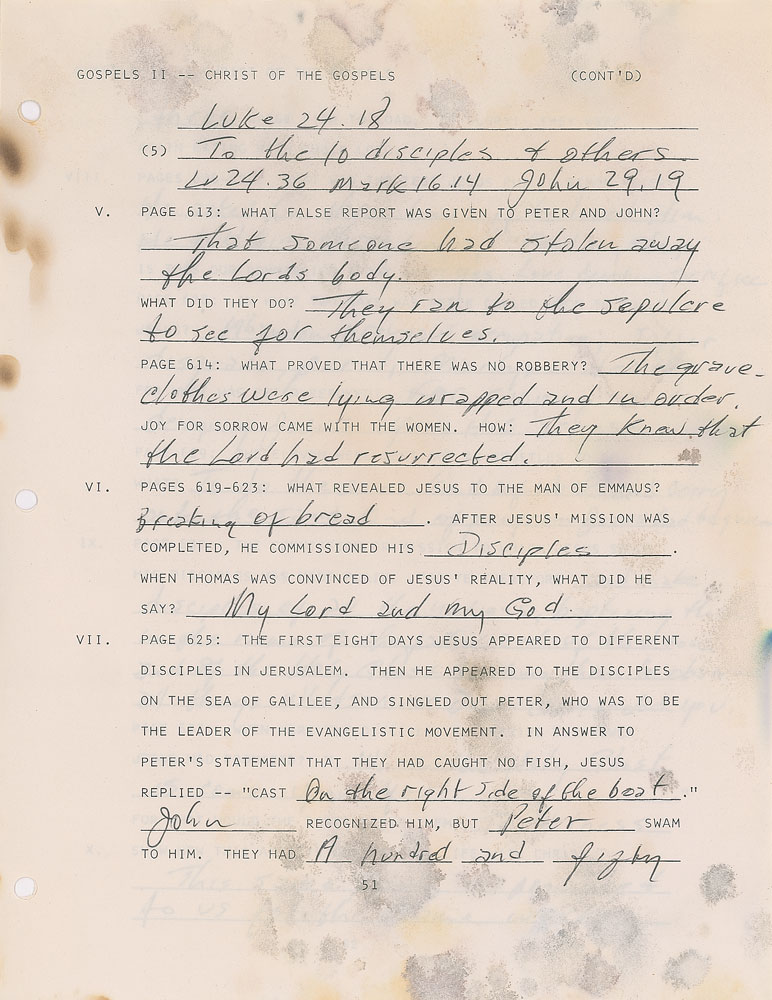 GOSPELS II -- CHRIST OF THE GOSPELS (CONT'D)
Luke 24.18
(5) To the 10 disciples & others.
Lu 24.36 Mark 16.14 John 29.19
V. PAGE 613: WHAT FALSE REPORT WAS GIVEN TO PETER AND JOHN?
That someone had stolen away
the Lords body.
WHAT DID THEY DO? They ran to the sepulcre
to see for themselves.
PAGE 614: WHAT PROVED THAT THERE WAS NO ROBBERY? The grave-
clothes were lying wrapped and in order.
JOY FOR SORROW CAME WITH THE WOMEN. HOW: They knew that
the Lord had resurrected.
VI. PAGES 619-623: WHAT REVEALED JESUS TO THE MAN OF EMMAUS?
Breaking of bread . AFTER JESUS' MISSION WAS
COMPLETED, HE COMMISSIONED HIS Disciples .
WHEN THOMAS WAS CONVINCED OF JESUS' REALITY, WHAT DID HE
SAY? My Lord and my God.
VII. PAGE 625: THE FIRST EIGHT DAYS JESUS APPEARED TO DIFFERENT
DISCIPLES IN JERUSALEM. THEN HE APPEARED TO THE DISCIPLES
ON THE SEA OF GALILEE, AND SINGLED OUT PETER, WHO WAS TO BE
THE LEADER OF THE EVANGELISTIC MOVEMENT. IN ANSWER TO
PETER'S STATEMENT THAT THEY HAD CAUGHT NO FISH, JESUS
REPLIED -- "CAST On the right side of the boat ."
John RECOGNIZED HIM, BUT Peter SWAM
TO HIM. THEY HAD A hundred and
51